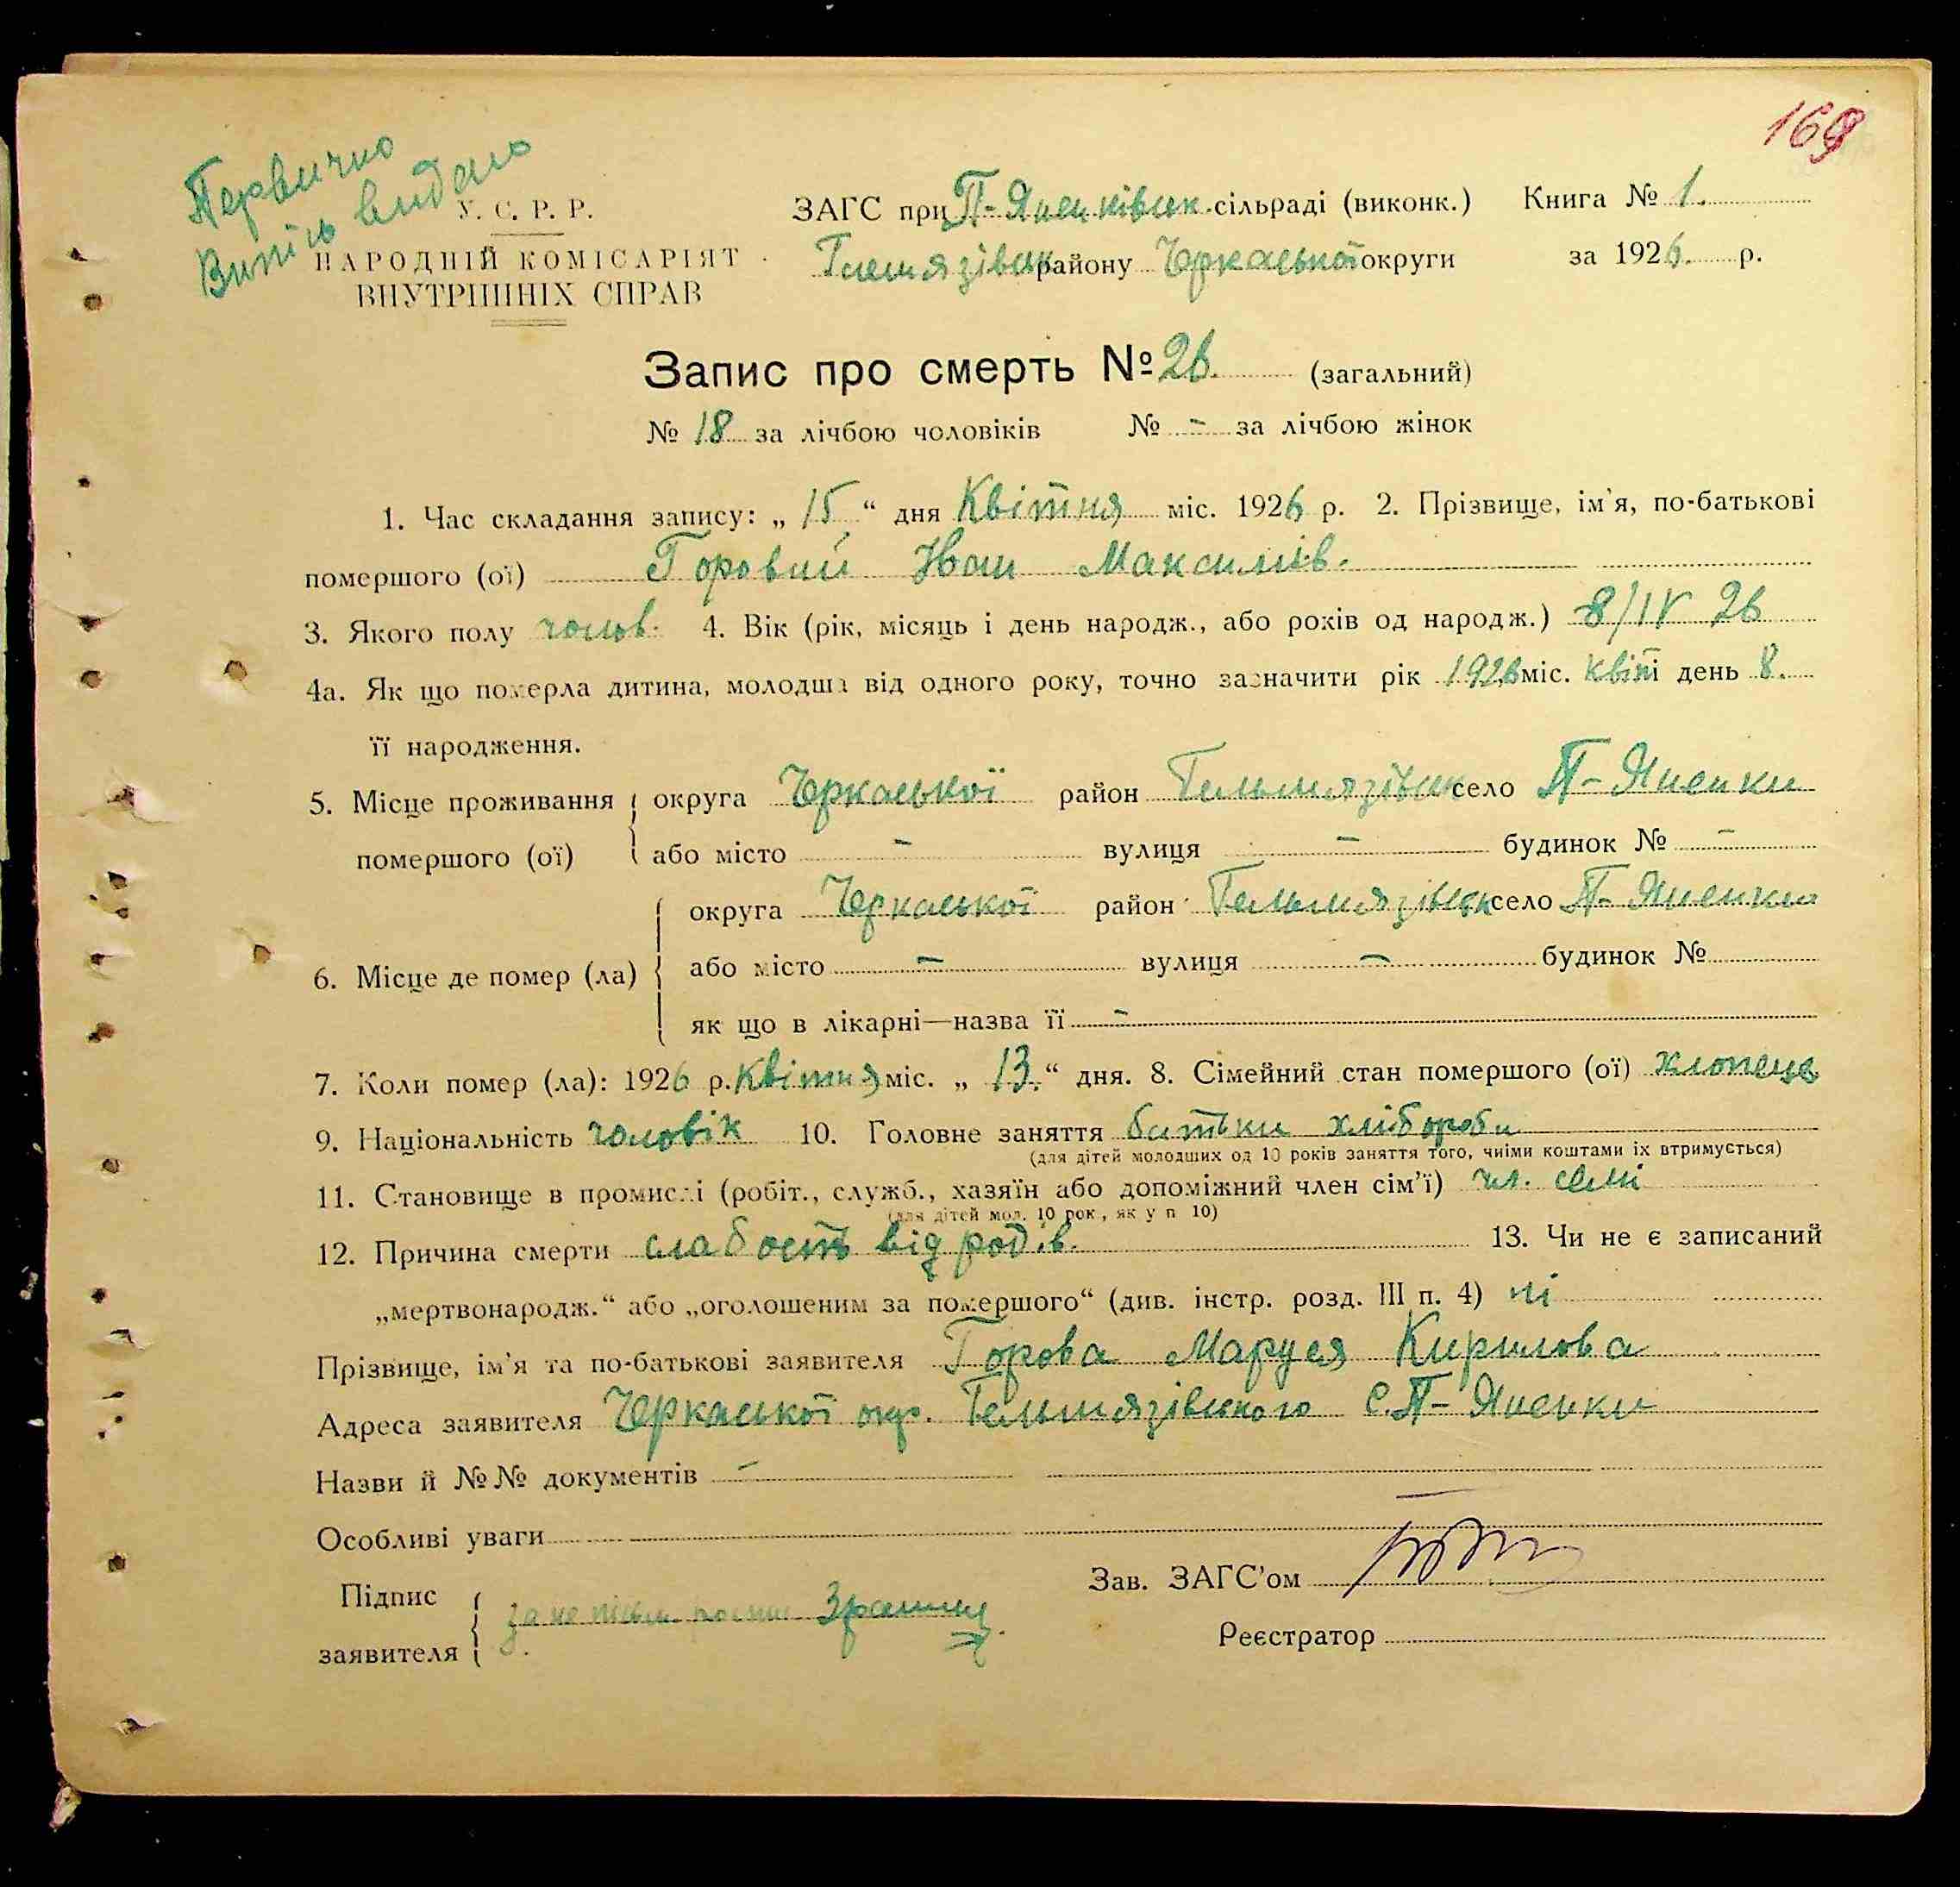 169
Первично
Випись видано
У. С. Р. Р.
НАРОДНІЙ КОМІСАРІЯТ
ВНУТРІШНІХ СПРАВ
ЗАГС при П-Яненківськ. сільраді (виконк.) Книга № 1.
Гельмязівськ району Черкаської округи за 1926. р.
Запис про смерть № 26. (загальний)
№ 18 за лічбою чоловіків № - за лічбою жінок
1. Час складання запису: „ 15 “ дня Квітня міс. 1926 р. 2. Прізвище, ім'я, по-батькові
помершого (ої) Горовий Иван Максимів.
3. Якого полу чолов. 4. Вік (рік, місяць і день народж., або років од народж.) 8/IV 26
4а. Як що померла дитина, молодша від одного року, точно зазначити рік 1926 міс. квіт і день 8.
її народження.
5. Місце проживання округа Черкаської район Гельмязівськ село П-Яненки
помершого (ої) або місто - вулиця - будинок № -
округа Черкаської район Гельмязівськ село П-Яненки
6. Місце де помер (ла) або місто - вулиця - будинок №
як що в лікарні—назва її -
7. Коли помер (ла): 1926 р. Квітня міс. „ 13. “ дня. 8. Сімейний стан помершого (ої) хлопець
9. Національність чоловік 10. Головне заняття батьки хлібороби
(для дітей молодших од 10 років заняття того, чиїми коштами їх втримується)
11. Становище в промислі (робіт., служб., хазяїн або допоміжний член сім'ї) чл. семі
(для дітей мол. 10 рок., як у п 10)
12. Причина смерти слабость від родів. 13. Чи не є записаний
„мертвонародж.“ або „оголошеним за помершого“ (див. інстр. розд. III п. 4) ні
Прізвище, ім'я та по-батькові заявителя Горова Маруся Кирилова
Адреса заявителя Черкаської окр. Гельмязівського С. П- Яненки
Назви й №№ документів -
Особливі уваги
Підпис
заявителя за непісьм.
Зав. ЗАГС'ом
Реєстратор